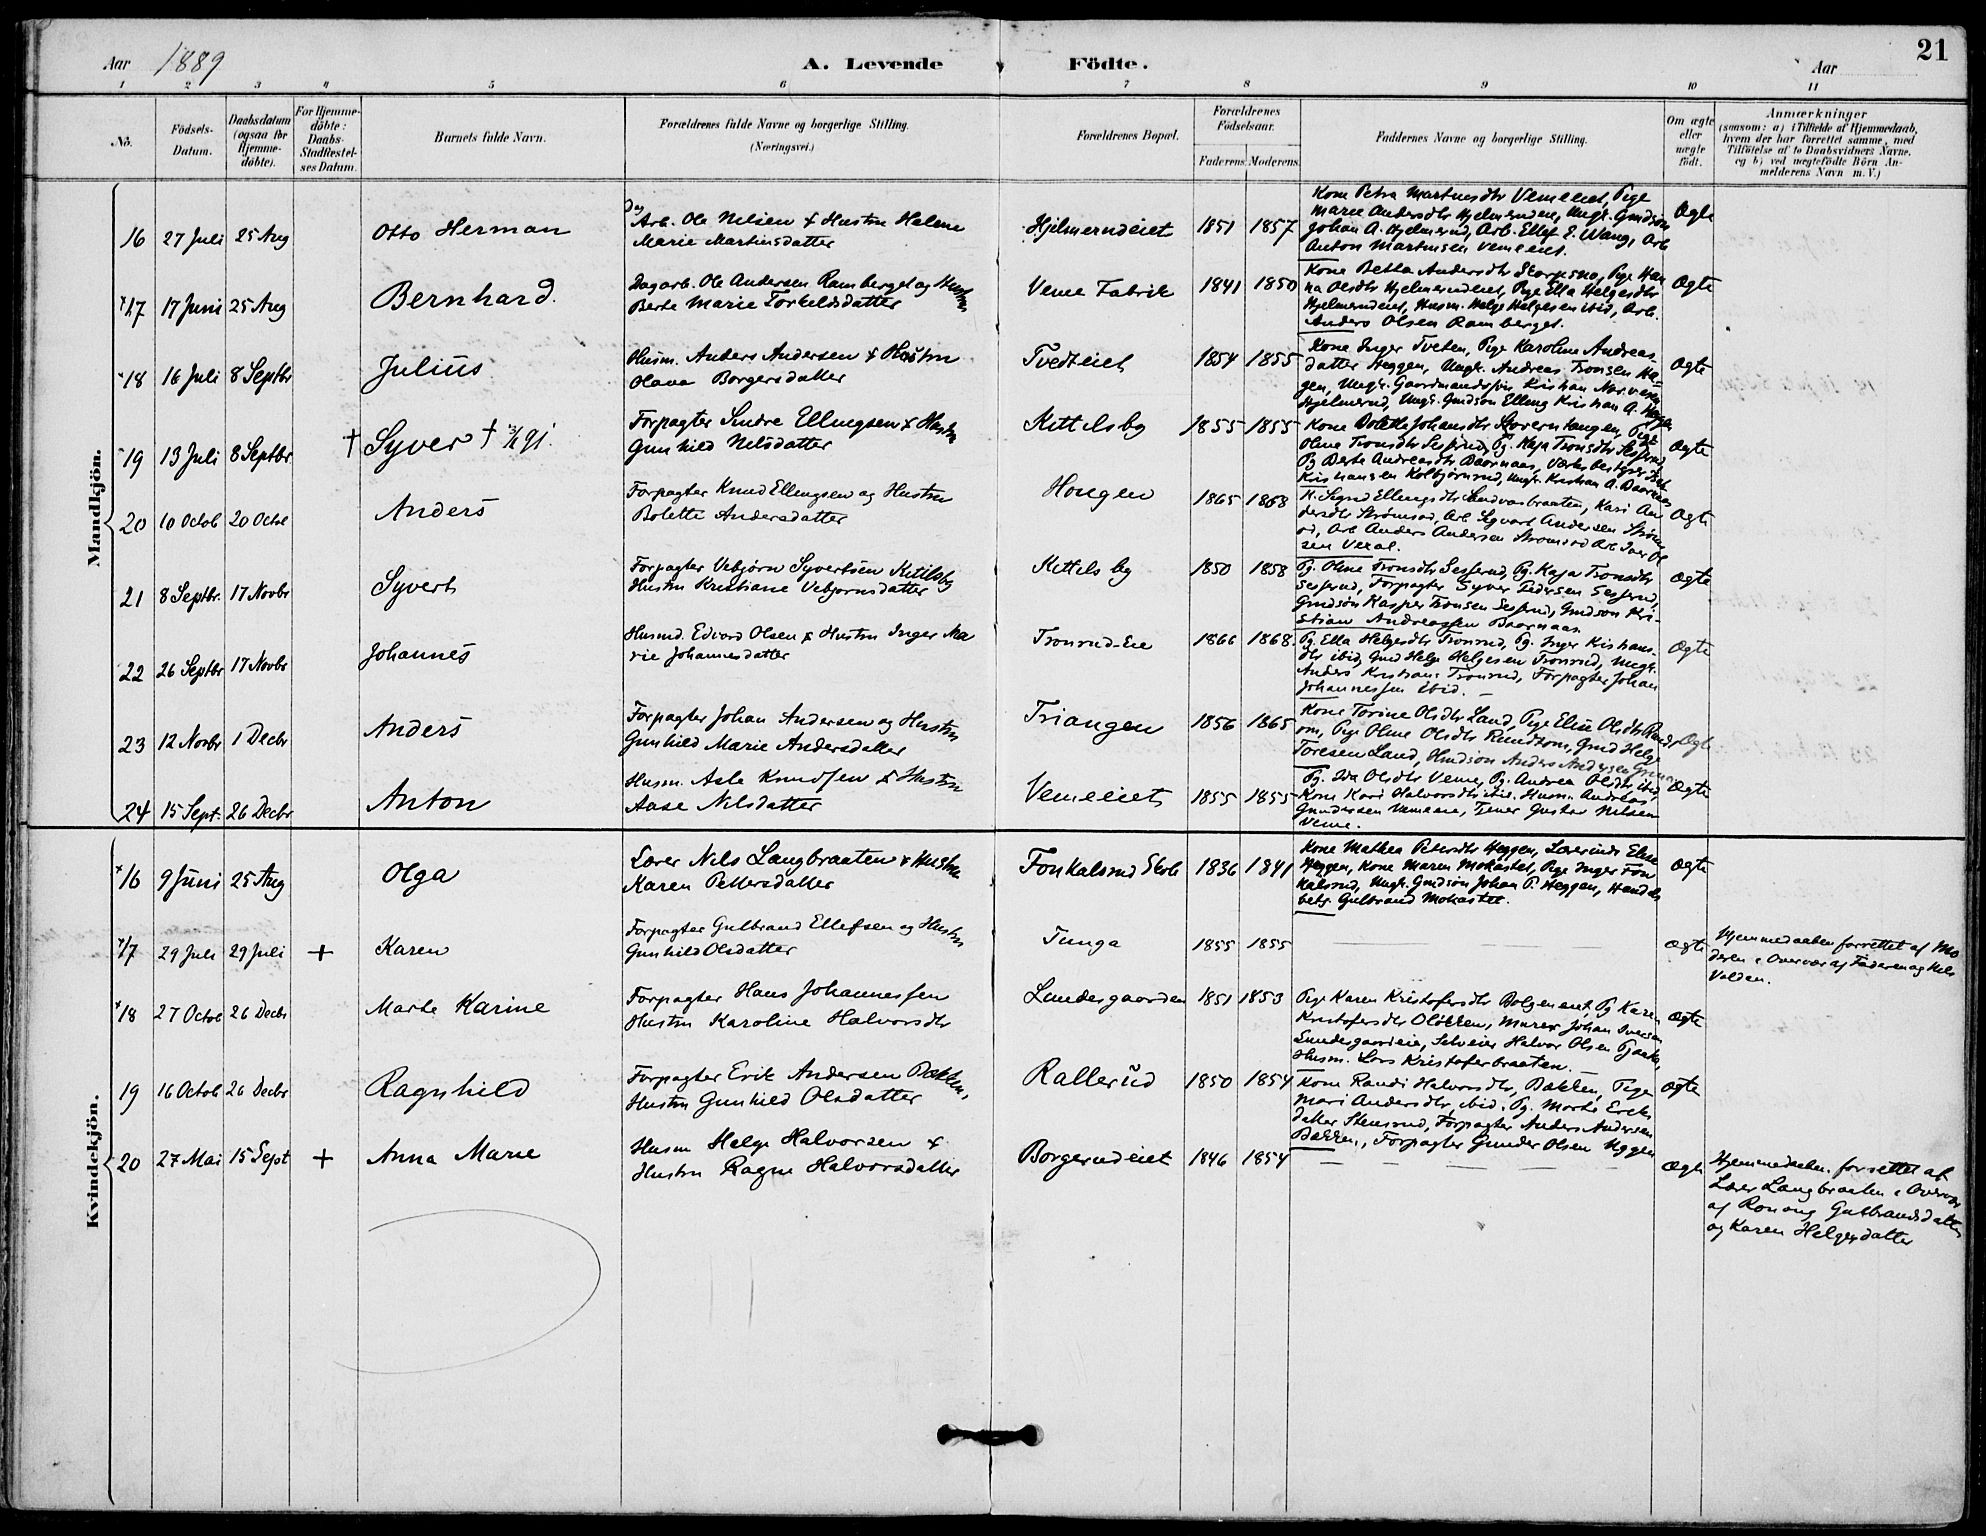 21
Aar 1889 A. Levende Födte. Aar
1 2 3 4 5 6 7 8 9 10 11
No. Födsels-Datum. Daabsdatum (ogsaa for Hjemme-döbte). For Hjemme-döbte: Daabs-Stadfæstel-ses Datum. Barnets fulde Navn. Forældrenes fulde Navne og borgerlige Stilling. (Næringsvei.) Forældrenes Bopæl. Forældrenes Födselsaar. Faderens Moderens. Faddernes Navne og borgerlige Stilling. Om ægte eller uægte födt. Anmærkninger (saasom: a) i Tilfælde af Hjemmedaab, hvem der har forrettet samme, med Tilföielse af to Daabsvidners Navne, og b) ved uægtefödte Börn An-melderens Navn m. V.)
Mandkjön.
16 27 Juli 25 Aug Otto Herman
Dag Arb. Ole Nilsen & Hustru Helene
Marie Martinsdatter
Hjelmerudeiet 1851 1857
Kone Petra Martinsdtr Vemeeiet, Pige
Marie Andersdtr Hjelmerudeie, Ungk. Gmdsøn
Johan A. Hjelmerud, Arb. Ellef E. Wang, Arb
Anton Martinsen Vemeeiet.
Ægte
17 17 Juni 25 Aug Bernhard.
Dagarb. Ole Andersen Ramberget og Hustru
Berte Marie Torkeldsdatter
Veme Fabrik 1841 1850
Kone Betta Andersdtr Skorpsno, Pige Han
na Olsdtr Hjelmerudeiet, Pige Ella Helgesdtr
Hjelmerudeiet, Husm. Helge Helgesen ibid, Arb.
Anders Olsen Ramberget.
Ægte
18 16 Juli 8 Septbr Julius
Husm. Anders Andersen & Hustru
Olava Borgersdatter
Tvedteiet 1854 1855
Kone Inger Tveten, Pige Karoline Andreas-
datter Heggen, Ungk. Andreas Tronsen Ha-
gen, Ungk. Gaardmandssøn Kristian
Hjelmerud, Ungk. Gmdsøn Elling Kristian A. Heggen
Ægte
19 13 Juli 8 Septbr † Syver † 91.
Forpagter Sindre Ellingsen & Hustru
Gunhild Nilsdatter
Kittelsby 1855 1855
Kone Dolette Johansdtr Skoverntangen, Pige
Oline Tronsdtr Sesserud, Pg. Kaja Tronsdtr Sesserud
Pg Berte Andreasdtr Baarnaas, Værksbestyrer
Kristiansen Kolbjørnsrud, Ungk. Kristian A. Baarnaas
Ægte
20 10 Octob 20 Octo Anders
Forpagter Knud Ellingsen og Hustru
Bolette Andersdatter
Hougen 1865 1868
K. Sigrid Ellingsdtr Sandvasbraaten, Kari An
dersdtr Strømsod, Arb. Syvert Andersen Strøm
od, Arb Anders Andersen Strømsod Arb Iver Ol
sen Veral.
Ægte
21 8 Septbr. 17 Novbr Syvert
Forpagter Vebjørn Syvertsen Kitilsby
Hustru Kristiane Vebjørnsdatter
Kittelsby 1850 1858
Pg. Oline Tronsdtr Sesserud, Pg. Kaja Tronsdtr
Sesserud, Forpagter Syver Pedersen Sesserud,
Gmdsøn Kasper Tronsen Sesserud, Gmdsøn Kri-
stian Andreassen Baarnaas
Ægte
22 26 Septbr 17 Novbr Johannes
Husmd. Edvard Olsen & Hustru Inger Ma
rie Johannesdatter
Tronrud-Eie 1866 1868.
Pg. Ella Helgesdtr Tronrud, Pg. Inger Kristians-
dtr ibid, Gmd Helge Helgesen Tronrud, Ungk.
Anders Kristians. Tronrud, Forpagter Johan
Johannessen ibid.
Ægte
23 12 Novbr 1 Decbr Anders
Forpagter Johan Andersen og Hustru
Gunhild Marie Andersdatter
Triangen 1856 1865
Kone Torine Olsdtr Land, Pige Elise Olsdtr Rands
om, Pige Oline Olsdtr Rundtom, Gmd Helge
Toresen Land, Gmdsøn Anders Andersen
Ægte
24 15 Sept. 26 Decbr Anton
Husm. Asle Knudsen & Hustru
Aase Nilsdatter
Vemeeiet 1855 1855
Pg. Ida Olsdtr Veme, Pg. Andrea Olsdtr ibid,
Kone Kari Halvorsdtr ibid. Husm. Andreas
Gundersen Vemeeie, Tjener Gustav Nilsen
Veme.
Ægte
Kvindekjön.
16 9 Juni 25 Aug Olga
Lærer Nils Langbraaten & Hustru
Karen Pettersdatter
Fonkalsrud Skole 1836 1841
Kone Mathea Petersdtr Heggen, Lærerinde Elise
Heggen, Kone Maren Mokastet, Pige Inger Fon
kalsrud, Ungk. Gmdsøn Johan P. Heggen, Handels
betj. Gulbrand Mokastet.
Ægte
17 29 Juli 29 Juli + Karen
Forpagter Gulbrand Ellefsen og Hustru
Gunhild Olsdatter
Tunga 1855 1855
Ægte
Hjemmedaaben forrettet af Mo
deren i Overvær af Faderen og Nils
Volden.
18 27 Octob 26 Decbr Marte Karine
Forpagter Hans Johannessen
Hustru Karoline Halvorsdtr
Lundesgaarden 1851 1853
Pige Karen Kristofersdtr Bolgeneiet, Pg Karen
Kristofersdtr Oløkken, Murer Johan Iversen
Lundesgaardeie, Selveier Halvor Olsen
Husm. Lars Kristofersbraaten.
Ægte
19 16 Octob 26 Decbr Ragnhild
Forpagter Erik Andersen Bakken,
Hustru Gunhild Olsdatter
Rallerud 1850 1854
Kone Randi Halvorsdtr, Bakken, Pige
Mari Andersdtr, ibid. Pg. Marte Eriks
datter Stensrud, Forpagter Anders Andersen
Bakken, Forpagter Gunder Olsen Heggen
Ægte
20 27 Mai 15 Sept + Anna Marie
Husm Helge Halvorsen &
Hustru Ragne Halvorsdatter
Borgerudeiet 1846 1854
Ægte
Hjemmedaaben forrettet af
Lærer Langbraaten i Overvær
af Ronoug Gulbrandsdatter
og Karen Helgesdatter